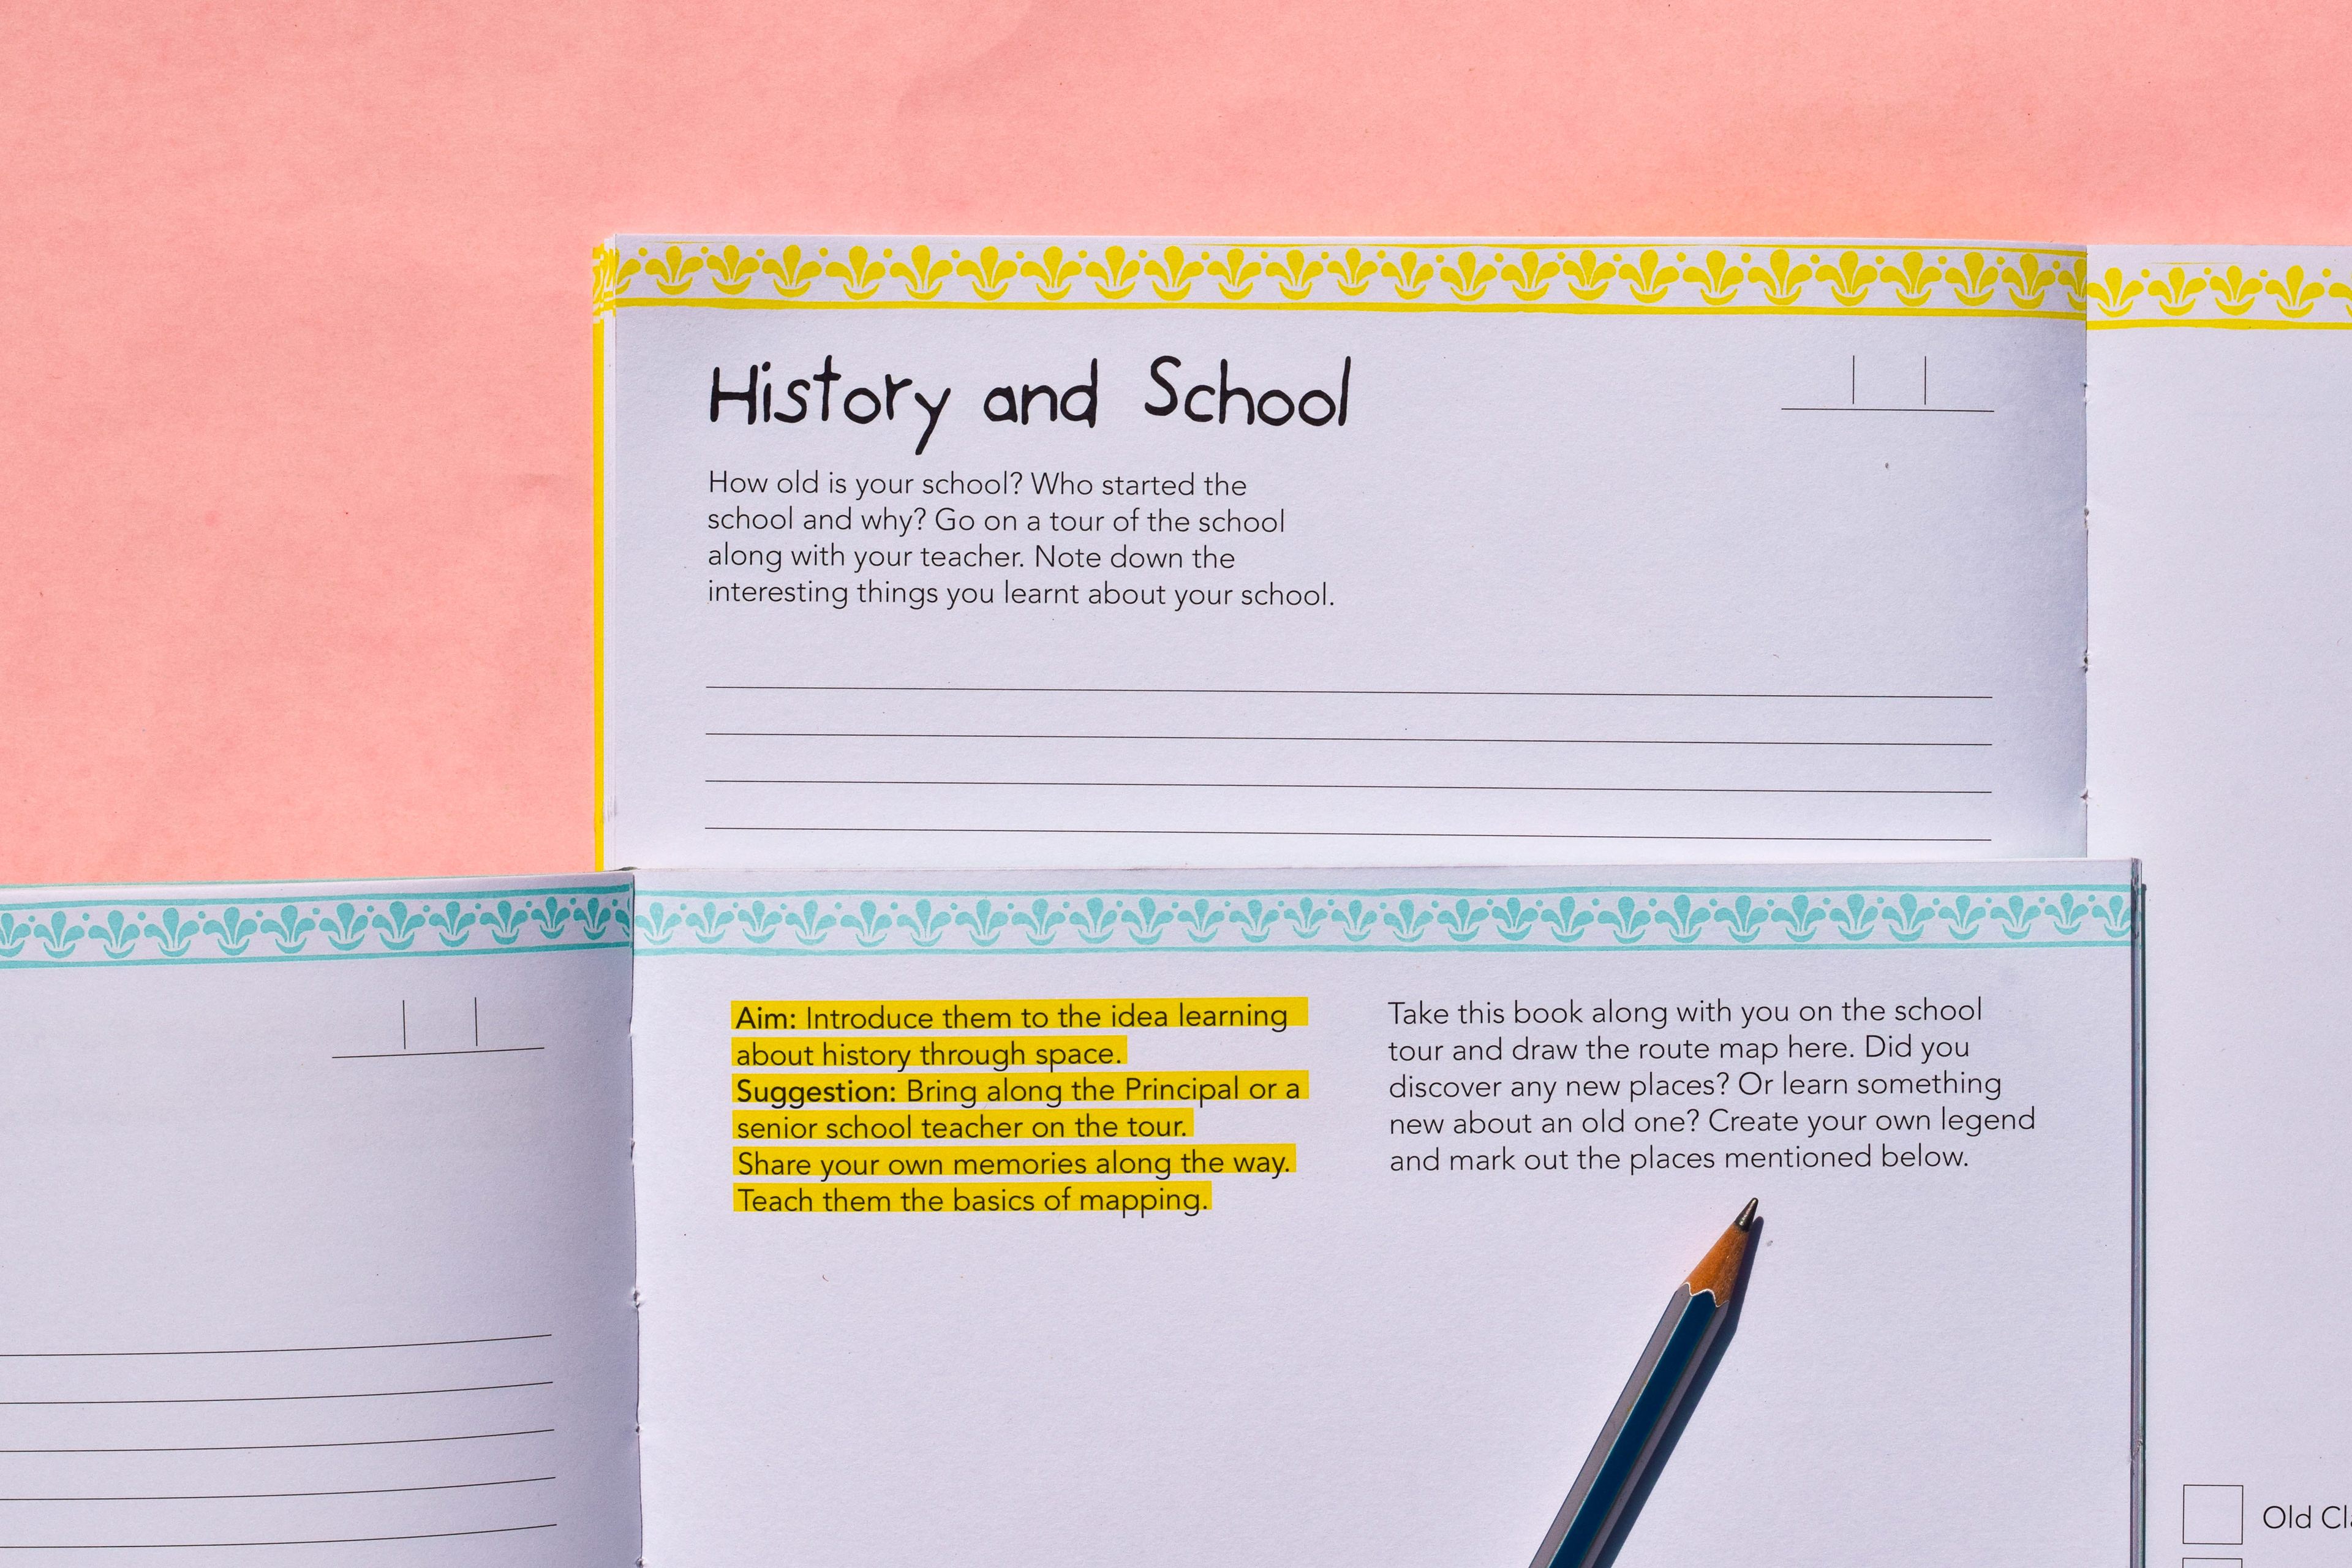 History and School
How old is your school? Who started the
school and why? Go on a tour of the school
along with your teacher. Note down the
interesting things you learnt about your school.
Aim: Introduce them to the idea learning
about history through space.
Suggestion: Bring along the Principal or a
senior school teacher on the tour.
Share your own memories along the way.
Teach them the basics of mapping.
Take this book along with you on the school
tour and draw the route map here. Did you
discover any new places? Or learn something
new about an old one? Create your own legend
and mark out the places mentioned below.
Old